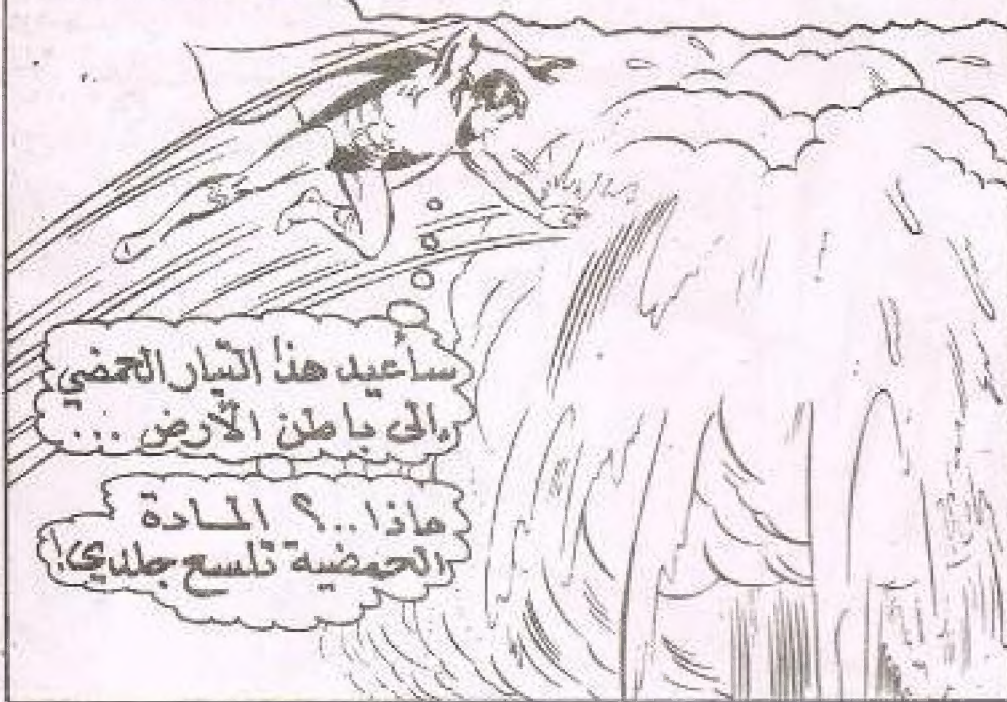 سأعيد هذا التيار الحمضي
إلى باطن الأرض ...
ماذا..؟ المادة
الحمضية تلسع جلدي!